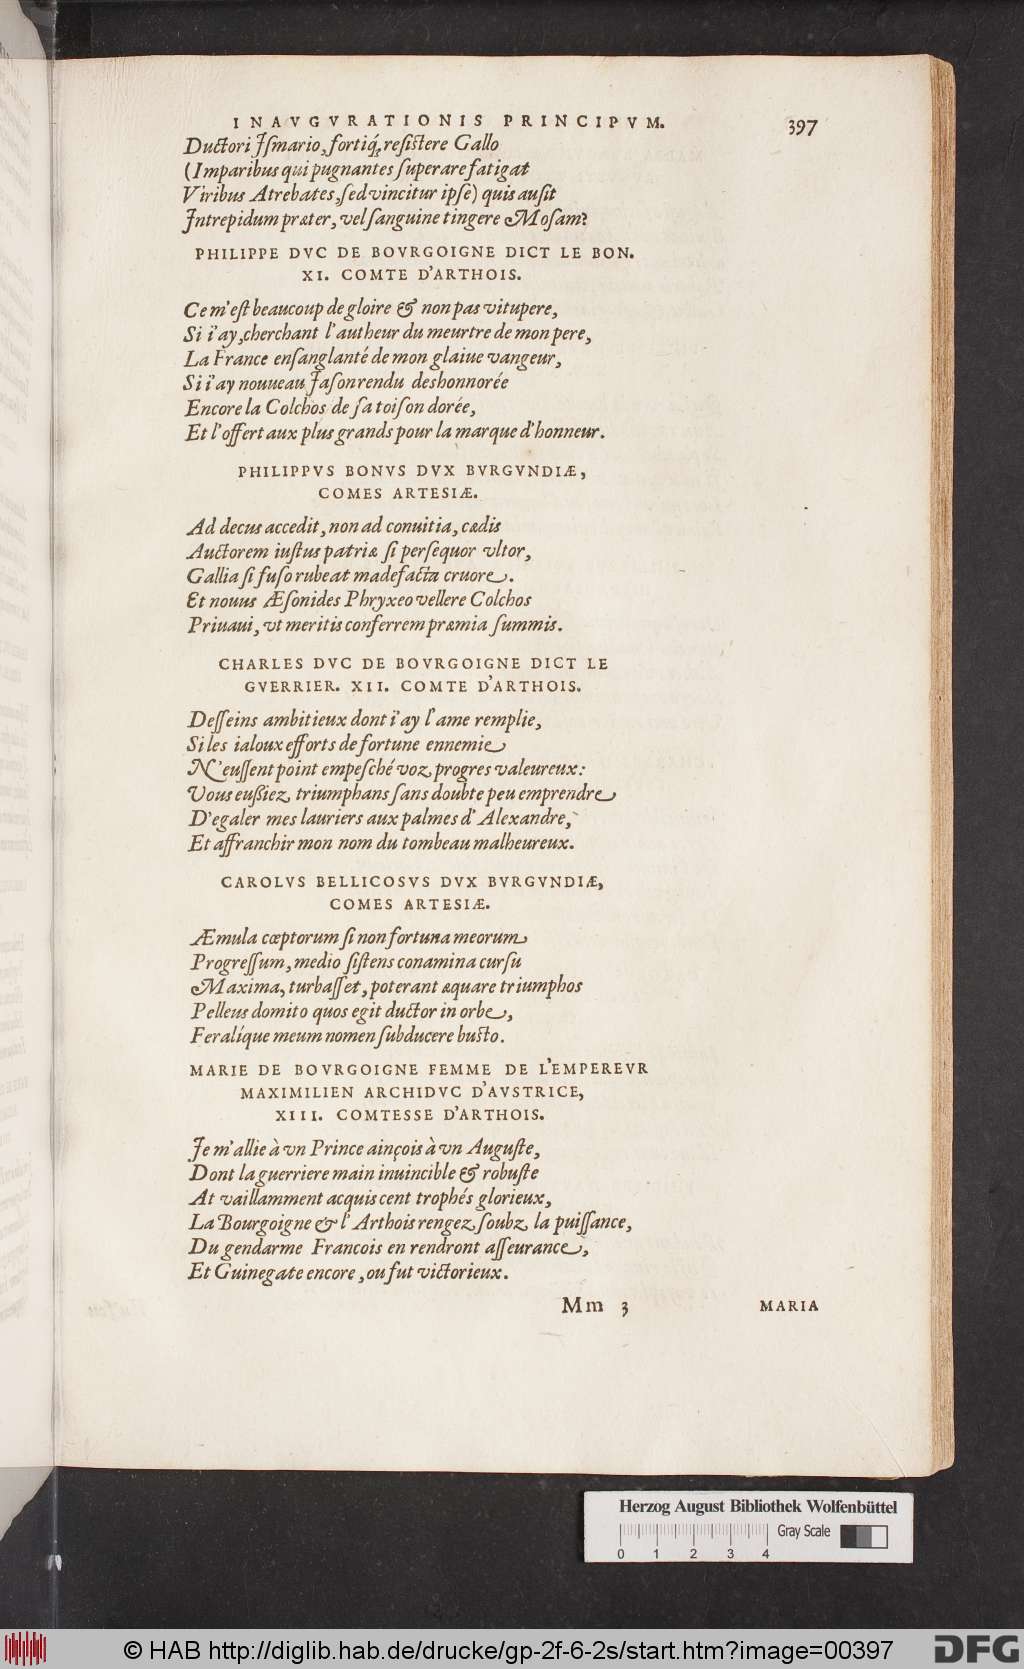 INAVGVRATIONIS PRINCIPVM. 397
Ductori Jsmario, fortiq́; resistere Gallo
(Imparibus qui pugnantes superare fatigat
Viribus Atrebates, sed vincitur ipse) quis ausit
Jntrepidum præter, vel sanguine tingere Mosam?
PHILIPPE DVC DE BOVRGOIGNE DICT LE BON.
XI. COMTE D'ARTHOIS.
Ce m'est beaucoup de gloire & non pas vitupere,
Si i'ay, cherchant l'autheur du meurtre de mon pere,
La France ensanglanté de mon glaiue vangeur,
Si i'ay nouueau Jason rendu deshonnorée
Encore la Colchos de sa toison dorée,
Et l'offert aux plus grands pour la marque d'honneur.
PHILIPPVS BONVS DVX BVRGVNDIÆ,
COMES ARTESIÆ.
Ad decus accedit, non ad conuitia, cædis
Auctorem iustus patriæ si persequor vltor,
Gallia si fuso rubeat madefacta cruore.
Et nouus Æsonides Phryxeo vellere Colchos
Priuaui, vt meritis conferrem præmia summis.
CHARLES DVC DE BOVRGOIGNE DICT LE
GVERRIER. XII. COMTE D'ARTHOIS.
Desseins ambitieux dont i'ay l'ame remplie,
Si les ialoux efforts de fortune ennemie
N'eussent point empesché voz progres valeureux:
Vous eußiez triumphans sans doubte peu emprendre
D'egaler mes lauriers aux palmes d'Alexandre,
Et affranchir mon nom du tombeau malheureux.
CAROLVS BELLICOSVS DVX BVRGVNDIÆ,
COMES ARTESIÆ.
Æmula cœptorum si non fortuna meorum
Progressum, medio sistens conamina cursu
Maxima, turbasset, poterant æquare triumphos
Pelleus domito quos egit ductor in orbe,
Feralíque meum nomen subducere busto.
MARIE DE BOVRGOIGNE FEMME DE L'EMPEREVR
MAXIMILIEN ARCHIDVC D'AVSTRICE,
XIII. COMTESSE D'ARTHOIS.
Je m'allie à vn Prince ainçois à vn Auguste,
Dont la guerriere main inuincible & robuste
At vaillamment acquis cent trophés glorieux,
La Bourgoigne & l'Arthois rengez soubz la puissance,
Du gendarme Francois en rendront asseurance,
Et Guinegate encore, ou fut victorieux.
Mm 3 MARIA
Herzog August Bibliothek Wolfenbüttel
Gray Scale
0 1 2 3 4
© HAB http://diglib.hab.de/drucke/gp-2f-6-2s/start.htm?image=00397
DFG